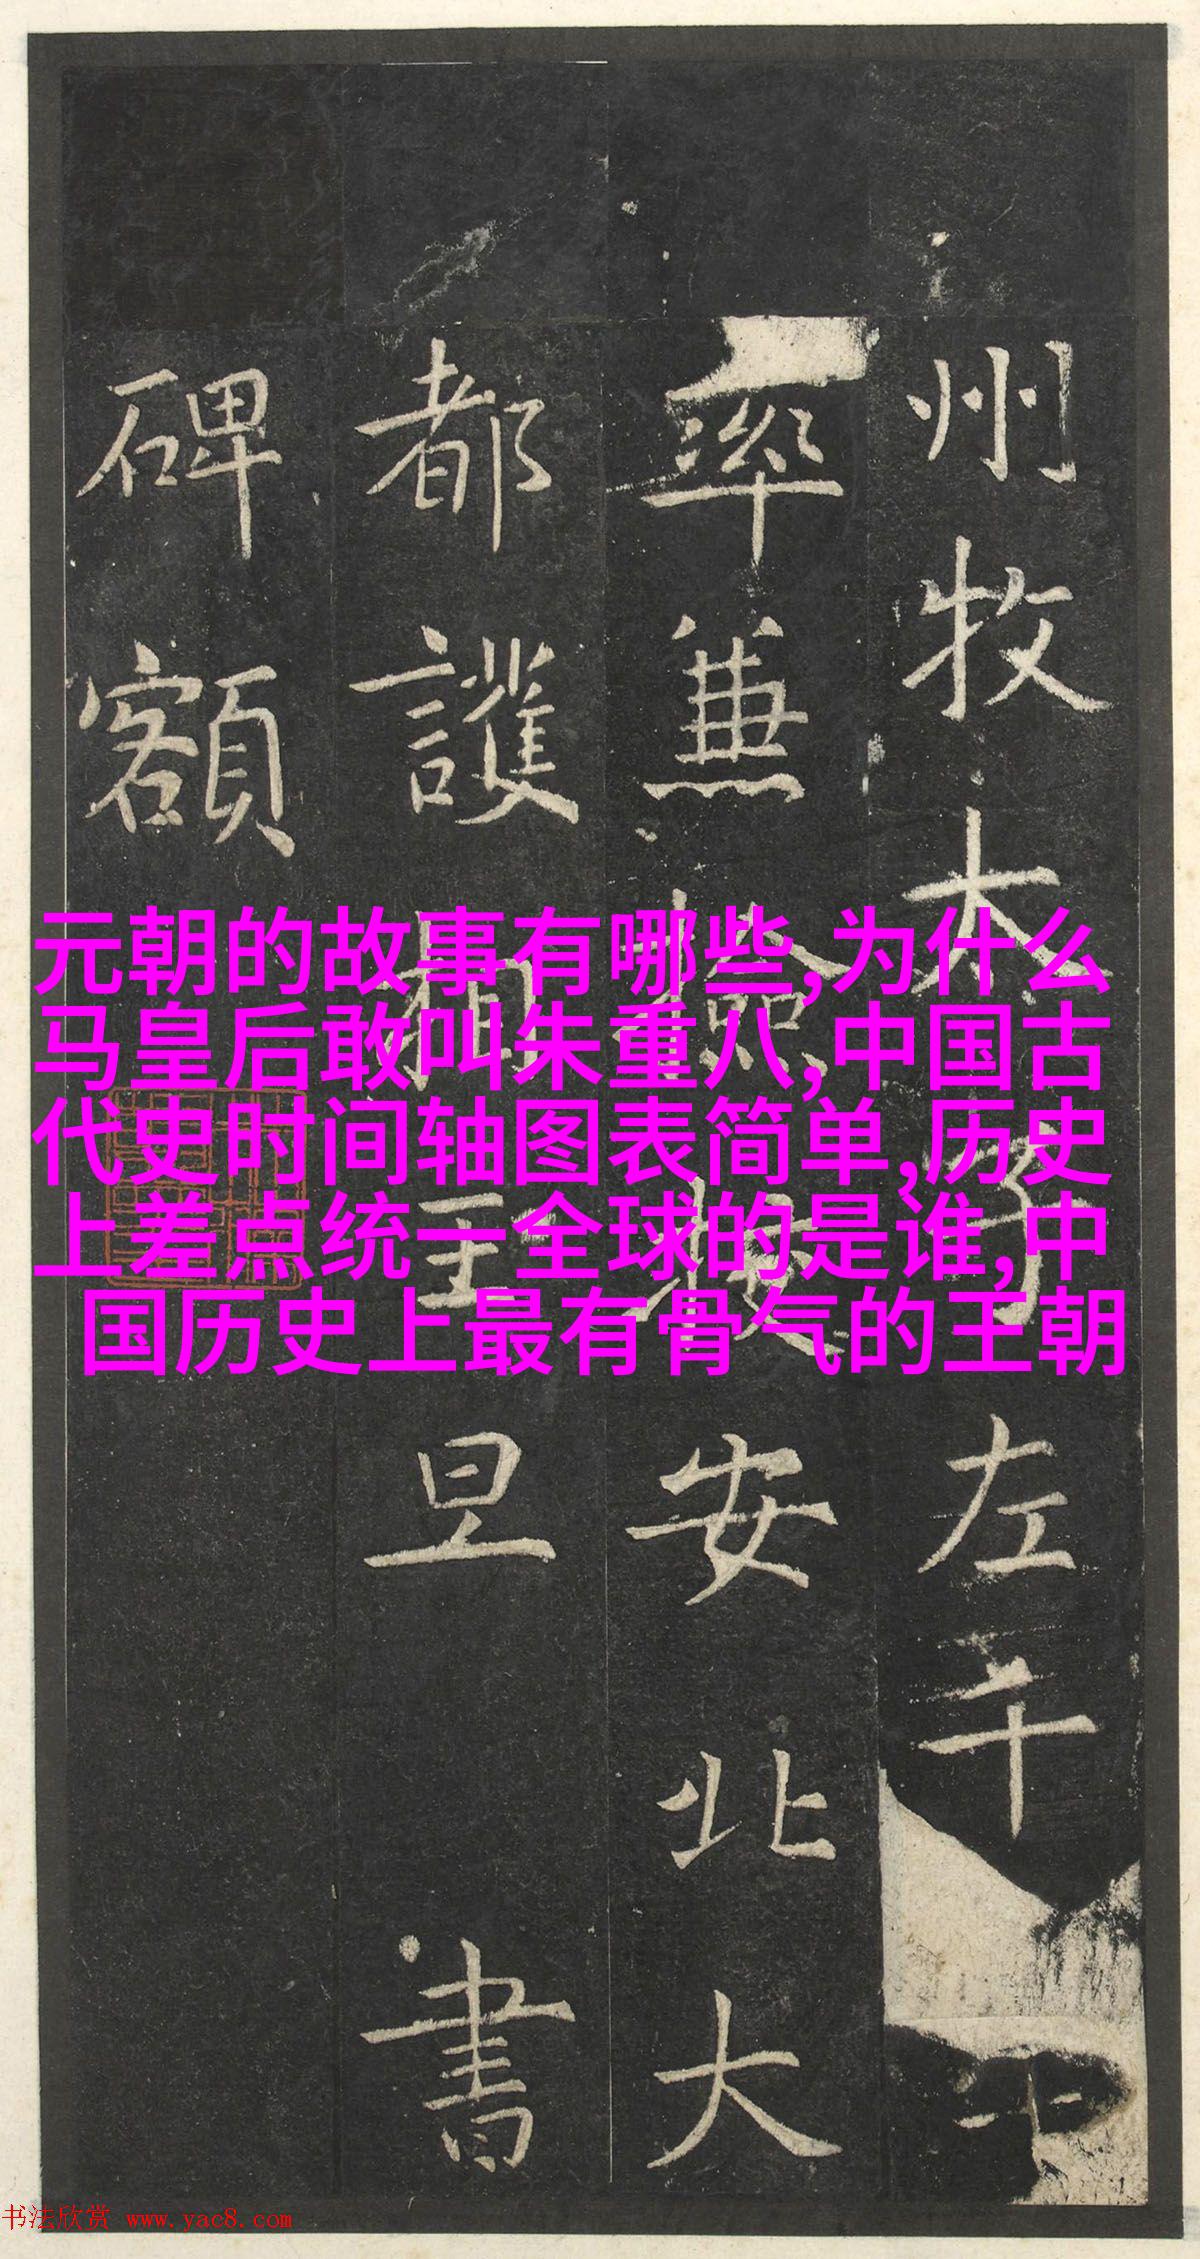 州牧太子左千
率兼檢校安北大
都護相王旦書
碑額
元朝的故事有哪些,为什么
马皇后敢叫朱重八,中国古
代史时间轴图表简单,历史
上差点统一全球的是谁,中
国历史上最有骨气的王朝
书法欣赏 www.yac8.com